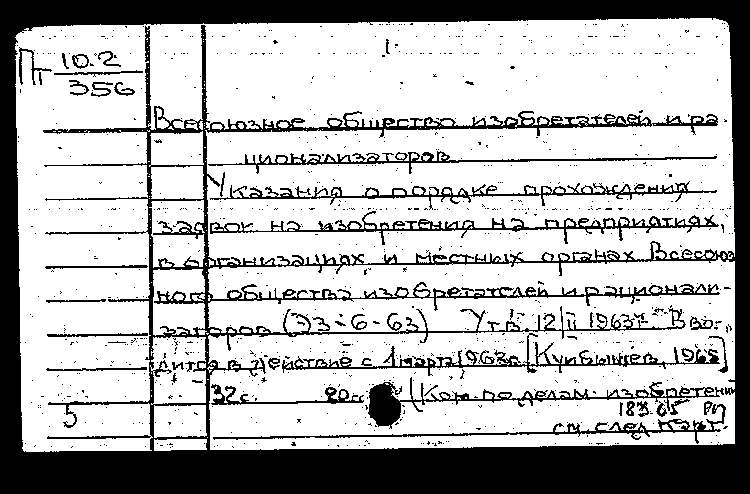 1.
Пт 10.2
356
Всесоюзное общество изобретателей и ра
ционализаторов
Указания о порядке прохождения
заявок на изобретения на предприятиях,
в организациях и местных органах Всесоюз
ного общества изобретателей и рационали-
заторов (ЭЗ-6-63) Утв. 12/II 1963г. Вво-
дится в действие с 1 марта 1963г. [Куйбышев, 1965]
32с. 20см (Ком. по делам изобретений
5 183 65
см. след. карт.